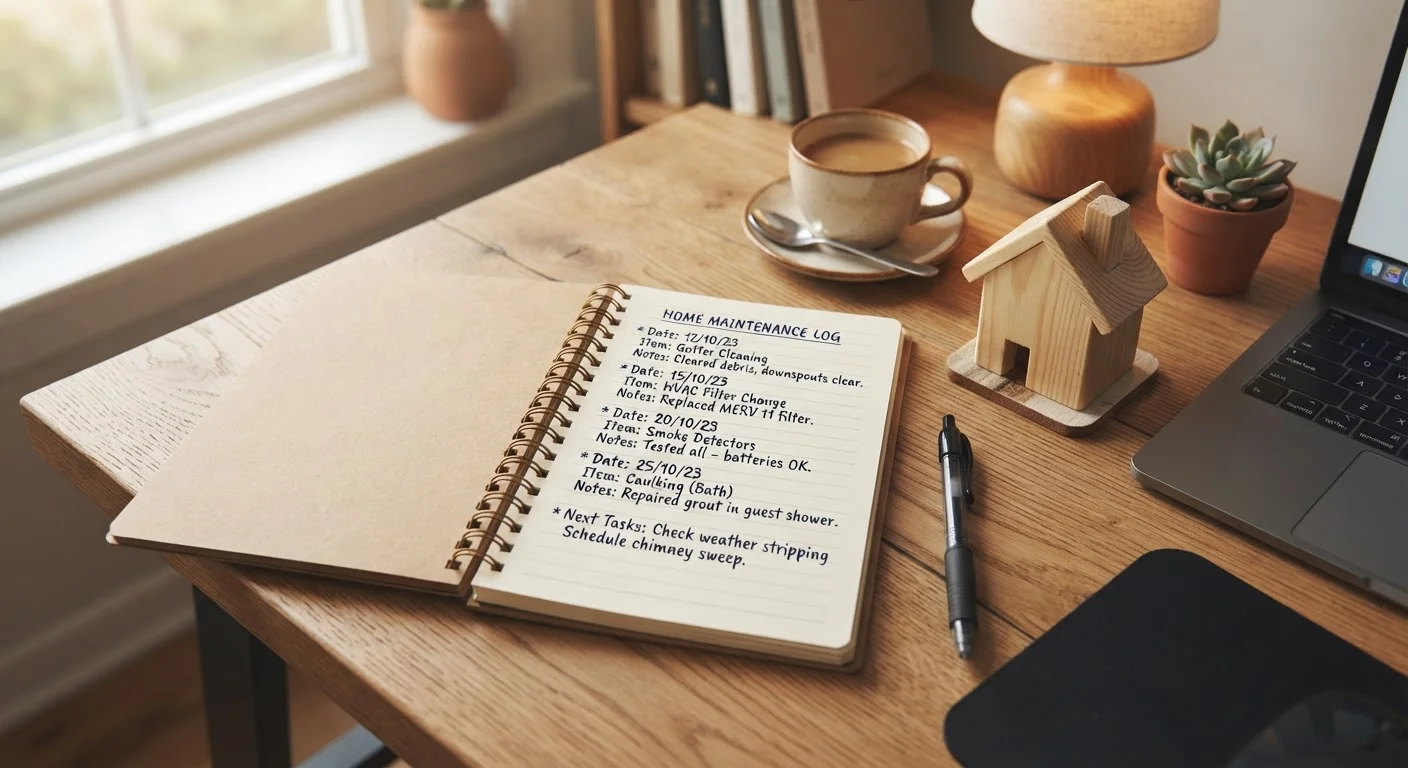 HOME MAINTENANCE LOG
* Date: 12/10/23
Item: Gutter Cleaning
Notes: Cleared debris, downspouts clear.
* Date: 15/10/23
Item: HVAC Filter Change
Notes: Replaced MERV 11 filter.
* Date: 20/10/23
Item: Smoke Detectors
Notes: Tested all – batteries OK.
* Date: 25/10/23
Item: Caulking (Bath)
Notes: Repaired grout in guest shower.
* Next Tasks: Check weather stripping
Schedule chimney sweep.